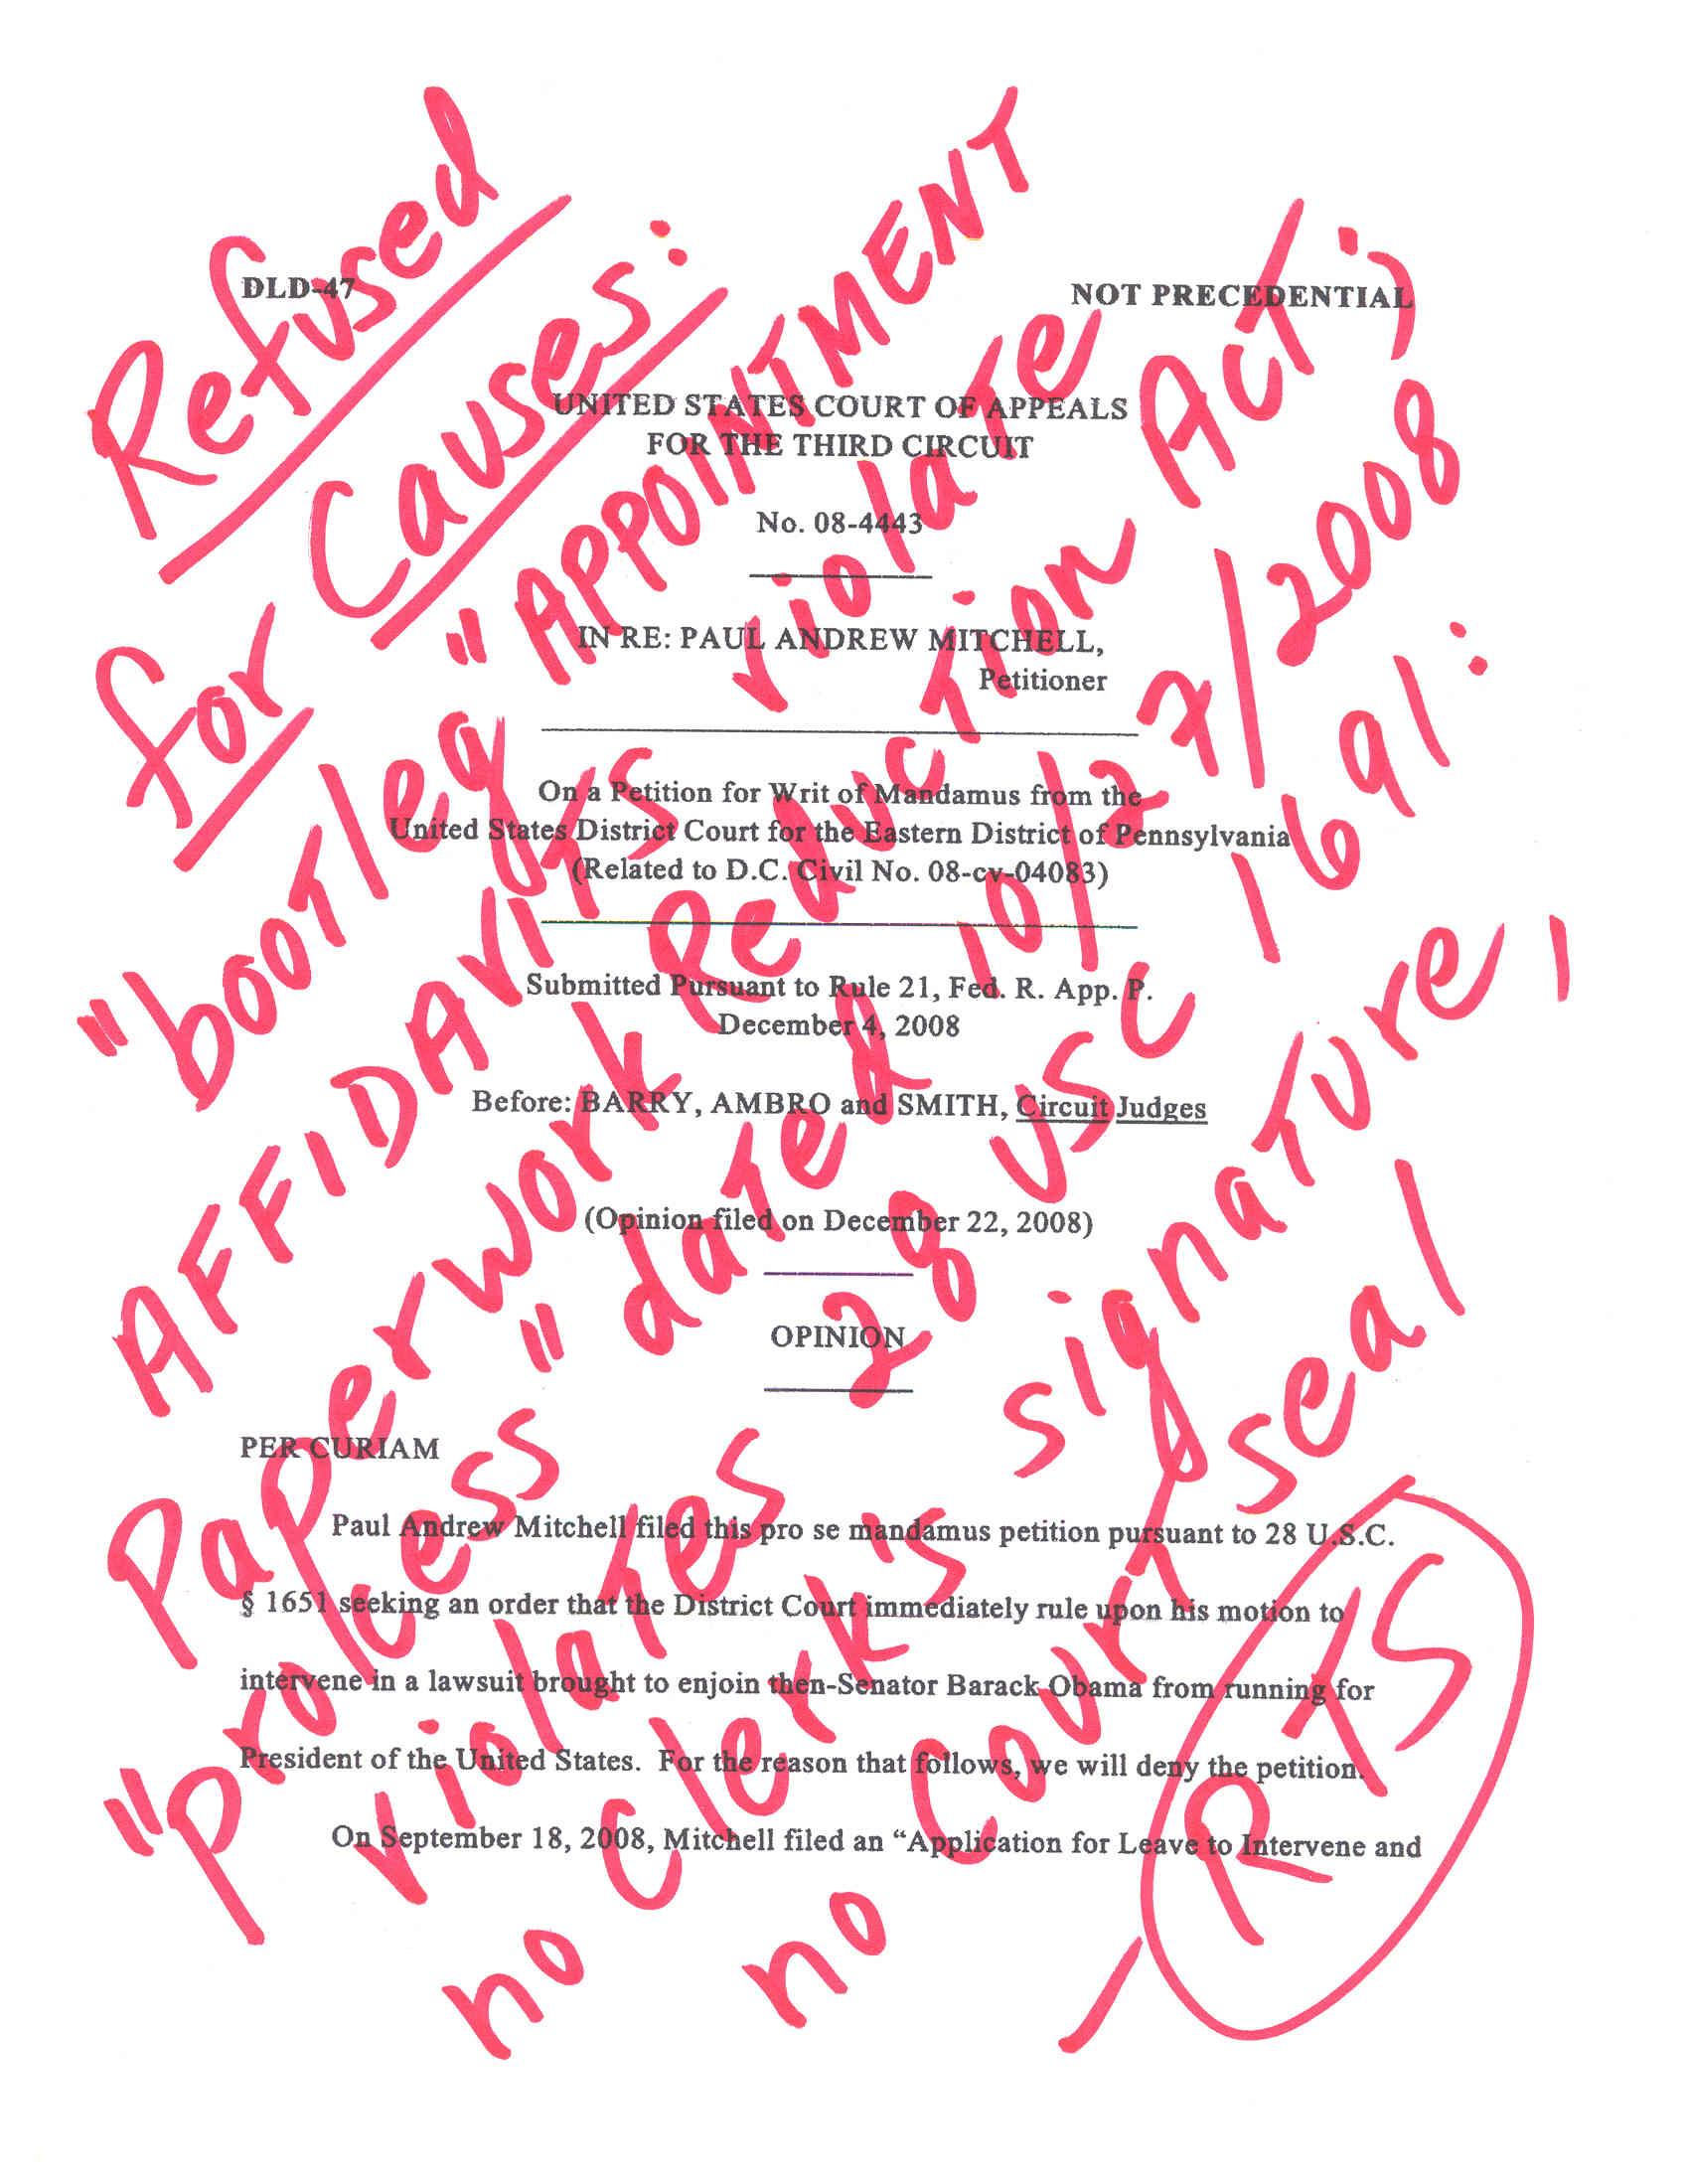 DLD-47
NOT PRECEDENTIAL
UNITED STATES COURT OF APPEALS
FOR THE THIRD CIRCUIT
No. 08-4443
IN RE: PAUL ANDREW MITCHELL,
Petitioner
On a Petition for Writ of Mandamus from the
United States District Court for the Eastern District of Pennsylvania
(Related to D.C. Civil No. 08-cv-04083)
Submitted Pursuant to Rule 21, Fed. R. App. P.
December 4, 2008
Before: BARRY, AMBRO and SMITH, Circuit Judges
(Opinion filed on December 22, 2008)
OPINION
PER CURIAM
Paul Andrew Mitchell filed this pro se mandamus petition pursuant to 28 U.S.C.
§ 1651 seeking an order that the District Court immediately rule upon his motion to
intervene in a lawsuit brought to enjoin then-Senator Barack Obama from running for
President of the United States. For the reason that follows, we will deny the petition.
On September 18, 2008, Mitchell filed an “Application for Leave to Intervene and
Refused
for Causes:
"bootleg "APPOINTMENT
AFFIDAVITS violate
Paperwork Reduction Act;
"process" dated 10/27/2008
violates 28 USC 1691:
no Clerk's signature,
no Court seal
RTS